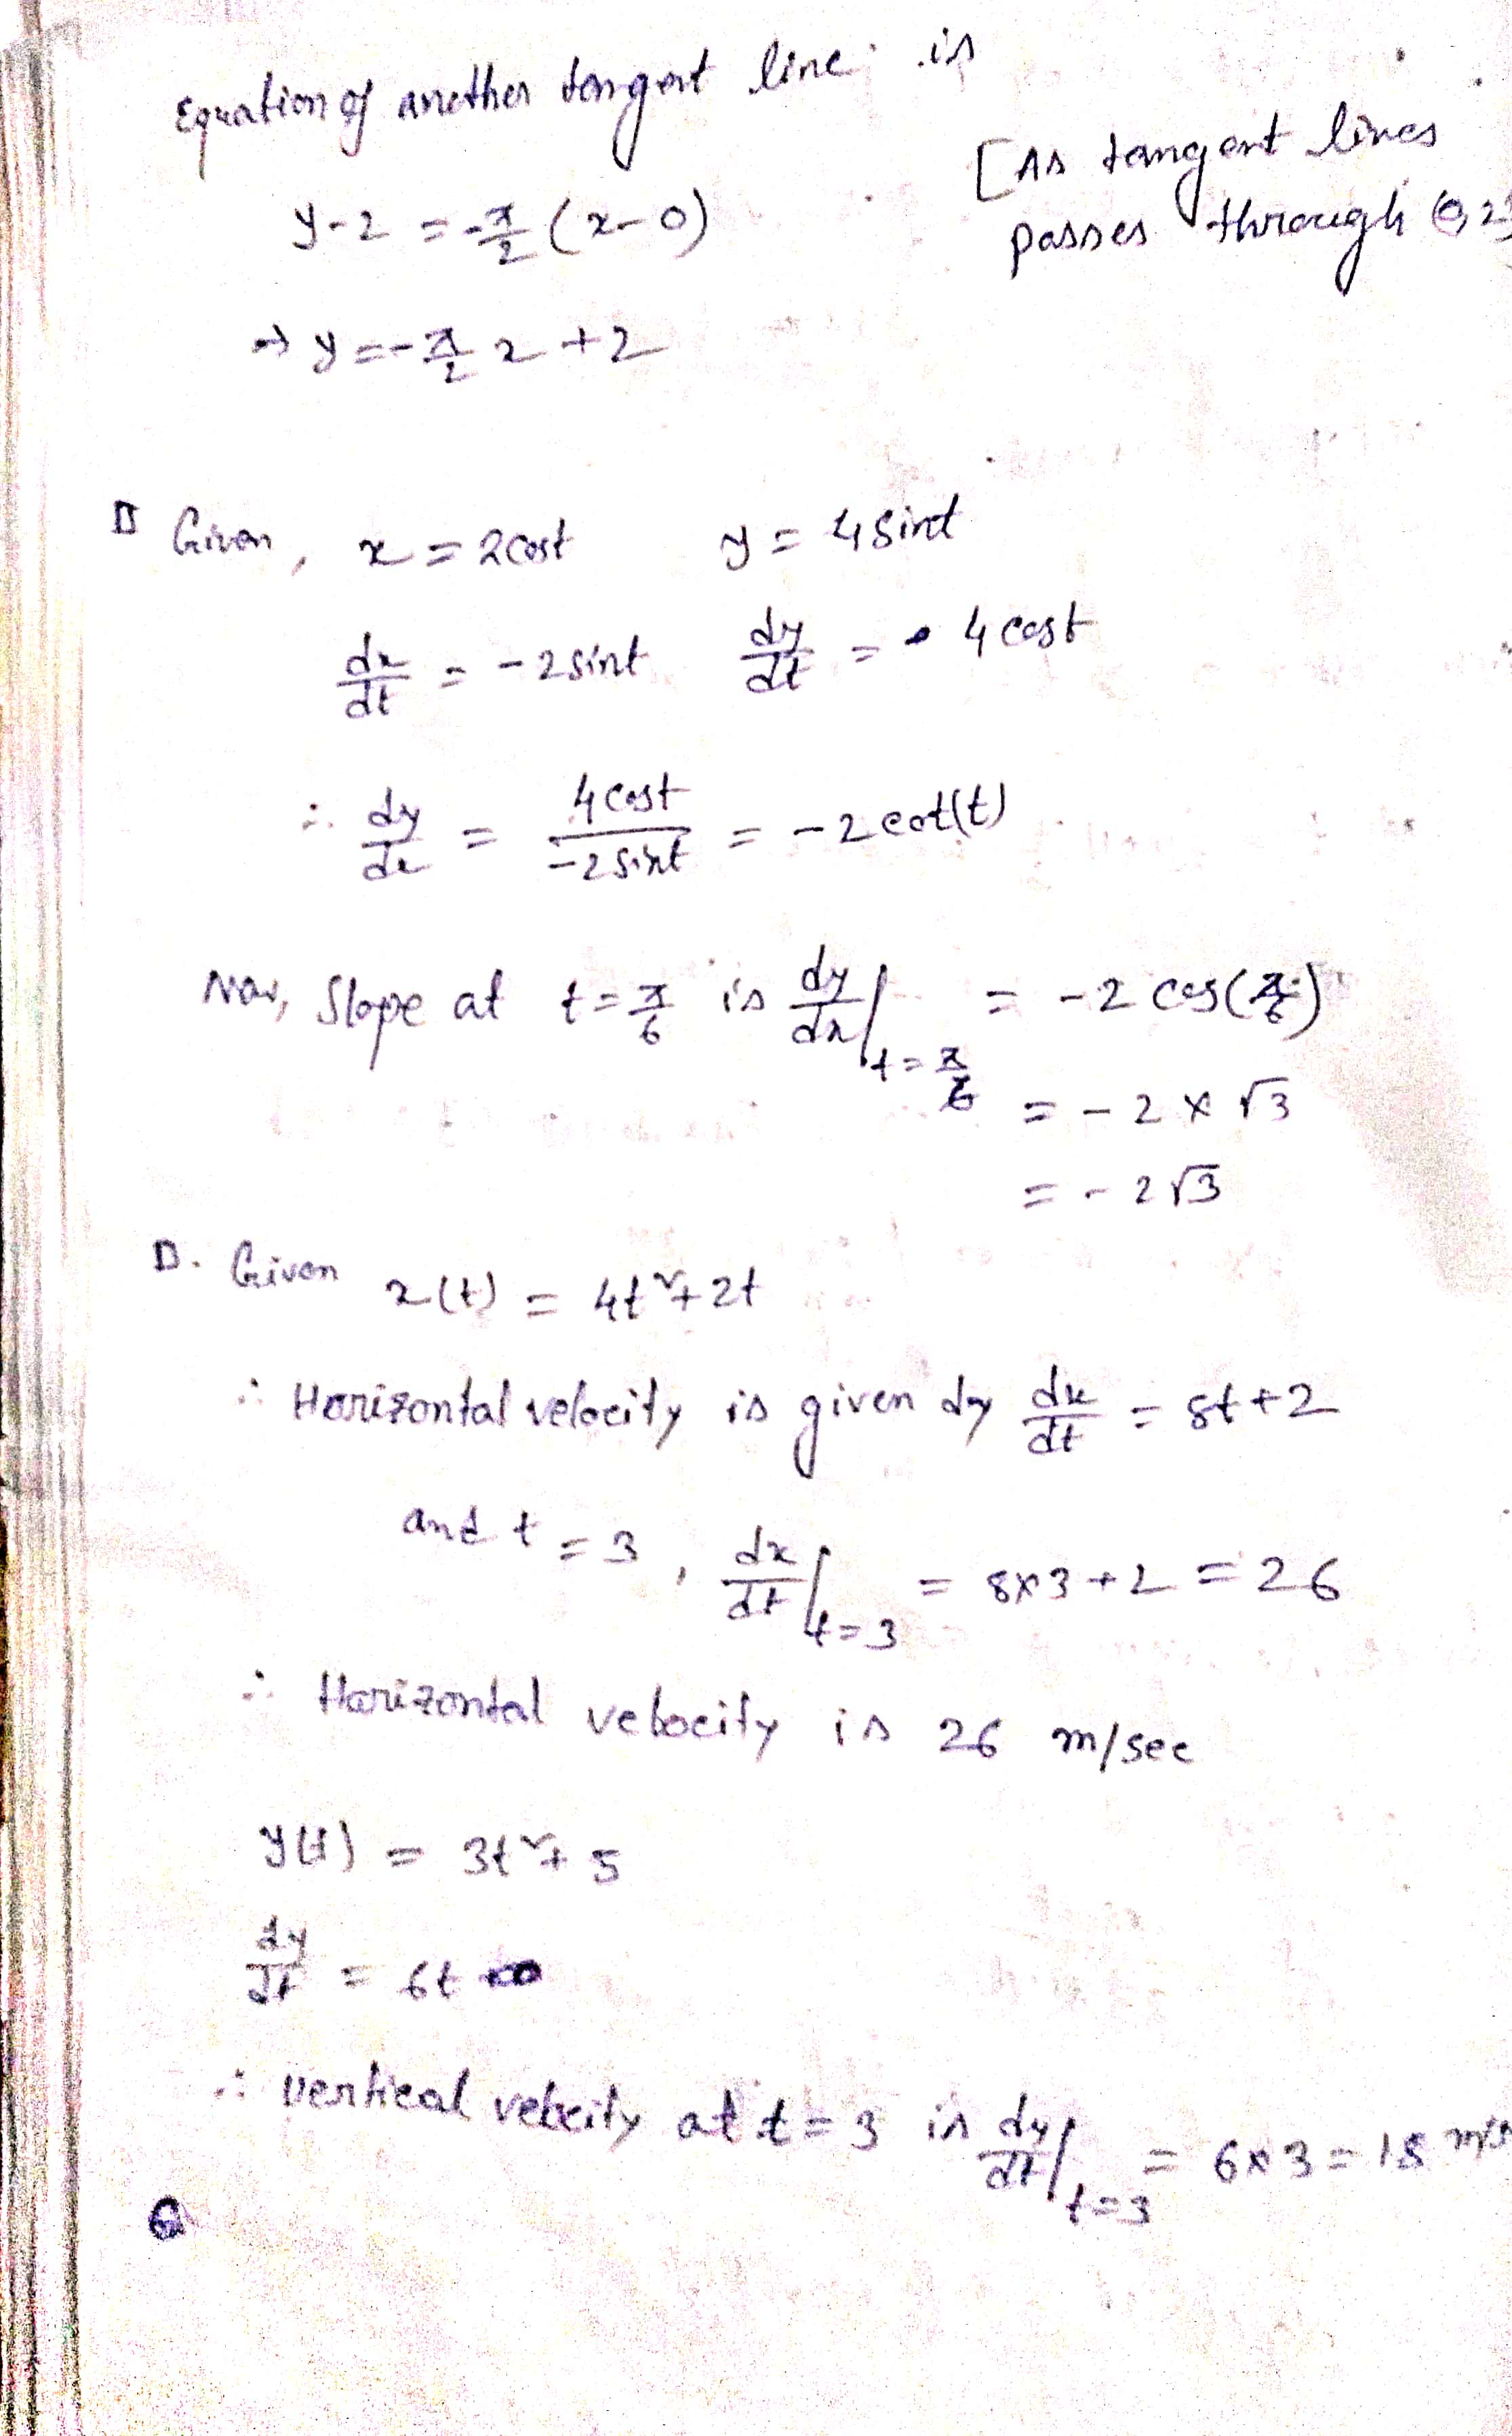 Equation of another tangent line is
y-2 = -π/2 (x-0) [As tangent lines passes through (0,2)
⇒ y = -π/2 x + 2
□ Given, x = 2cost y = 4sint
dx/dt = -2sint dy/dt = 4cost
∴ dy/dx = 4cost/-2sint = -2cot(t)
Now, Slope at t = π/6 is dy/dx|t=π/6 = -2 cos(π/6)
= -2 × √3
= -2√3
D. Given x(t) = 4t²+2t
∴ Horizontal velocity is given by dx/dt = 8t+2
and t = 3, dx/dt|t=3 = 8×3+2 = 26
∴ Horizontal velocity is 26 m/sec
y(t) = 3t²+5
dy/dt = 6t
∴ vertical velocity at t = 3 is dy/dt|t=3 = 6×3 = 18 m/s